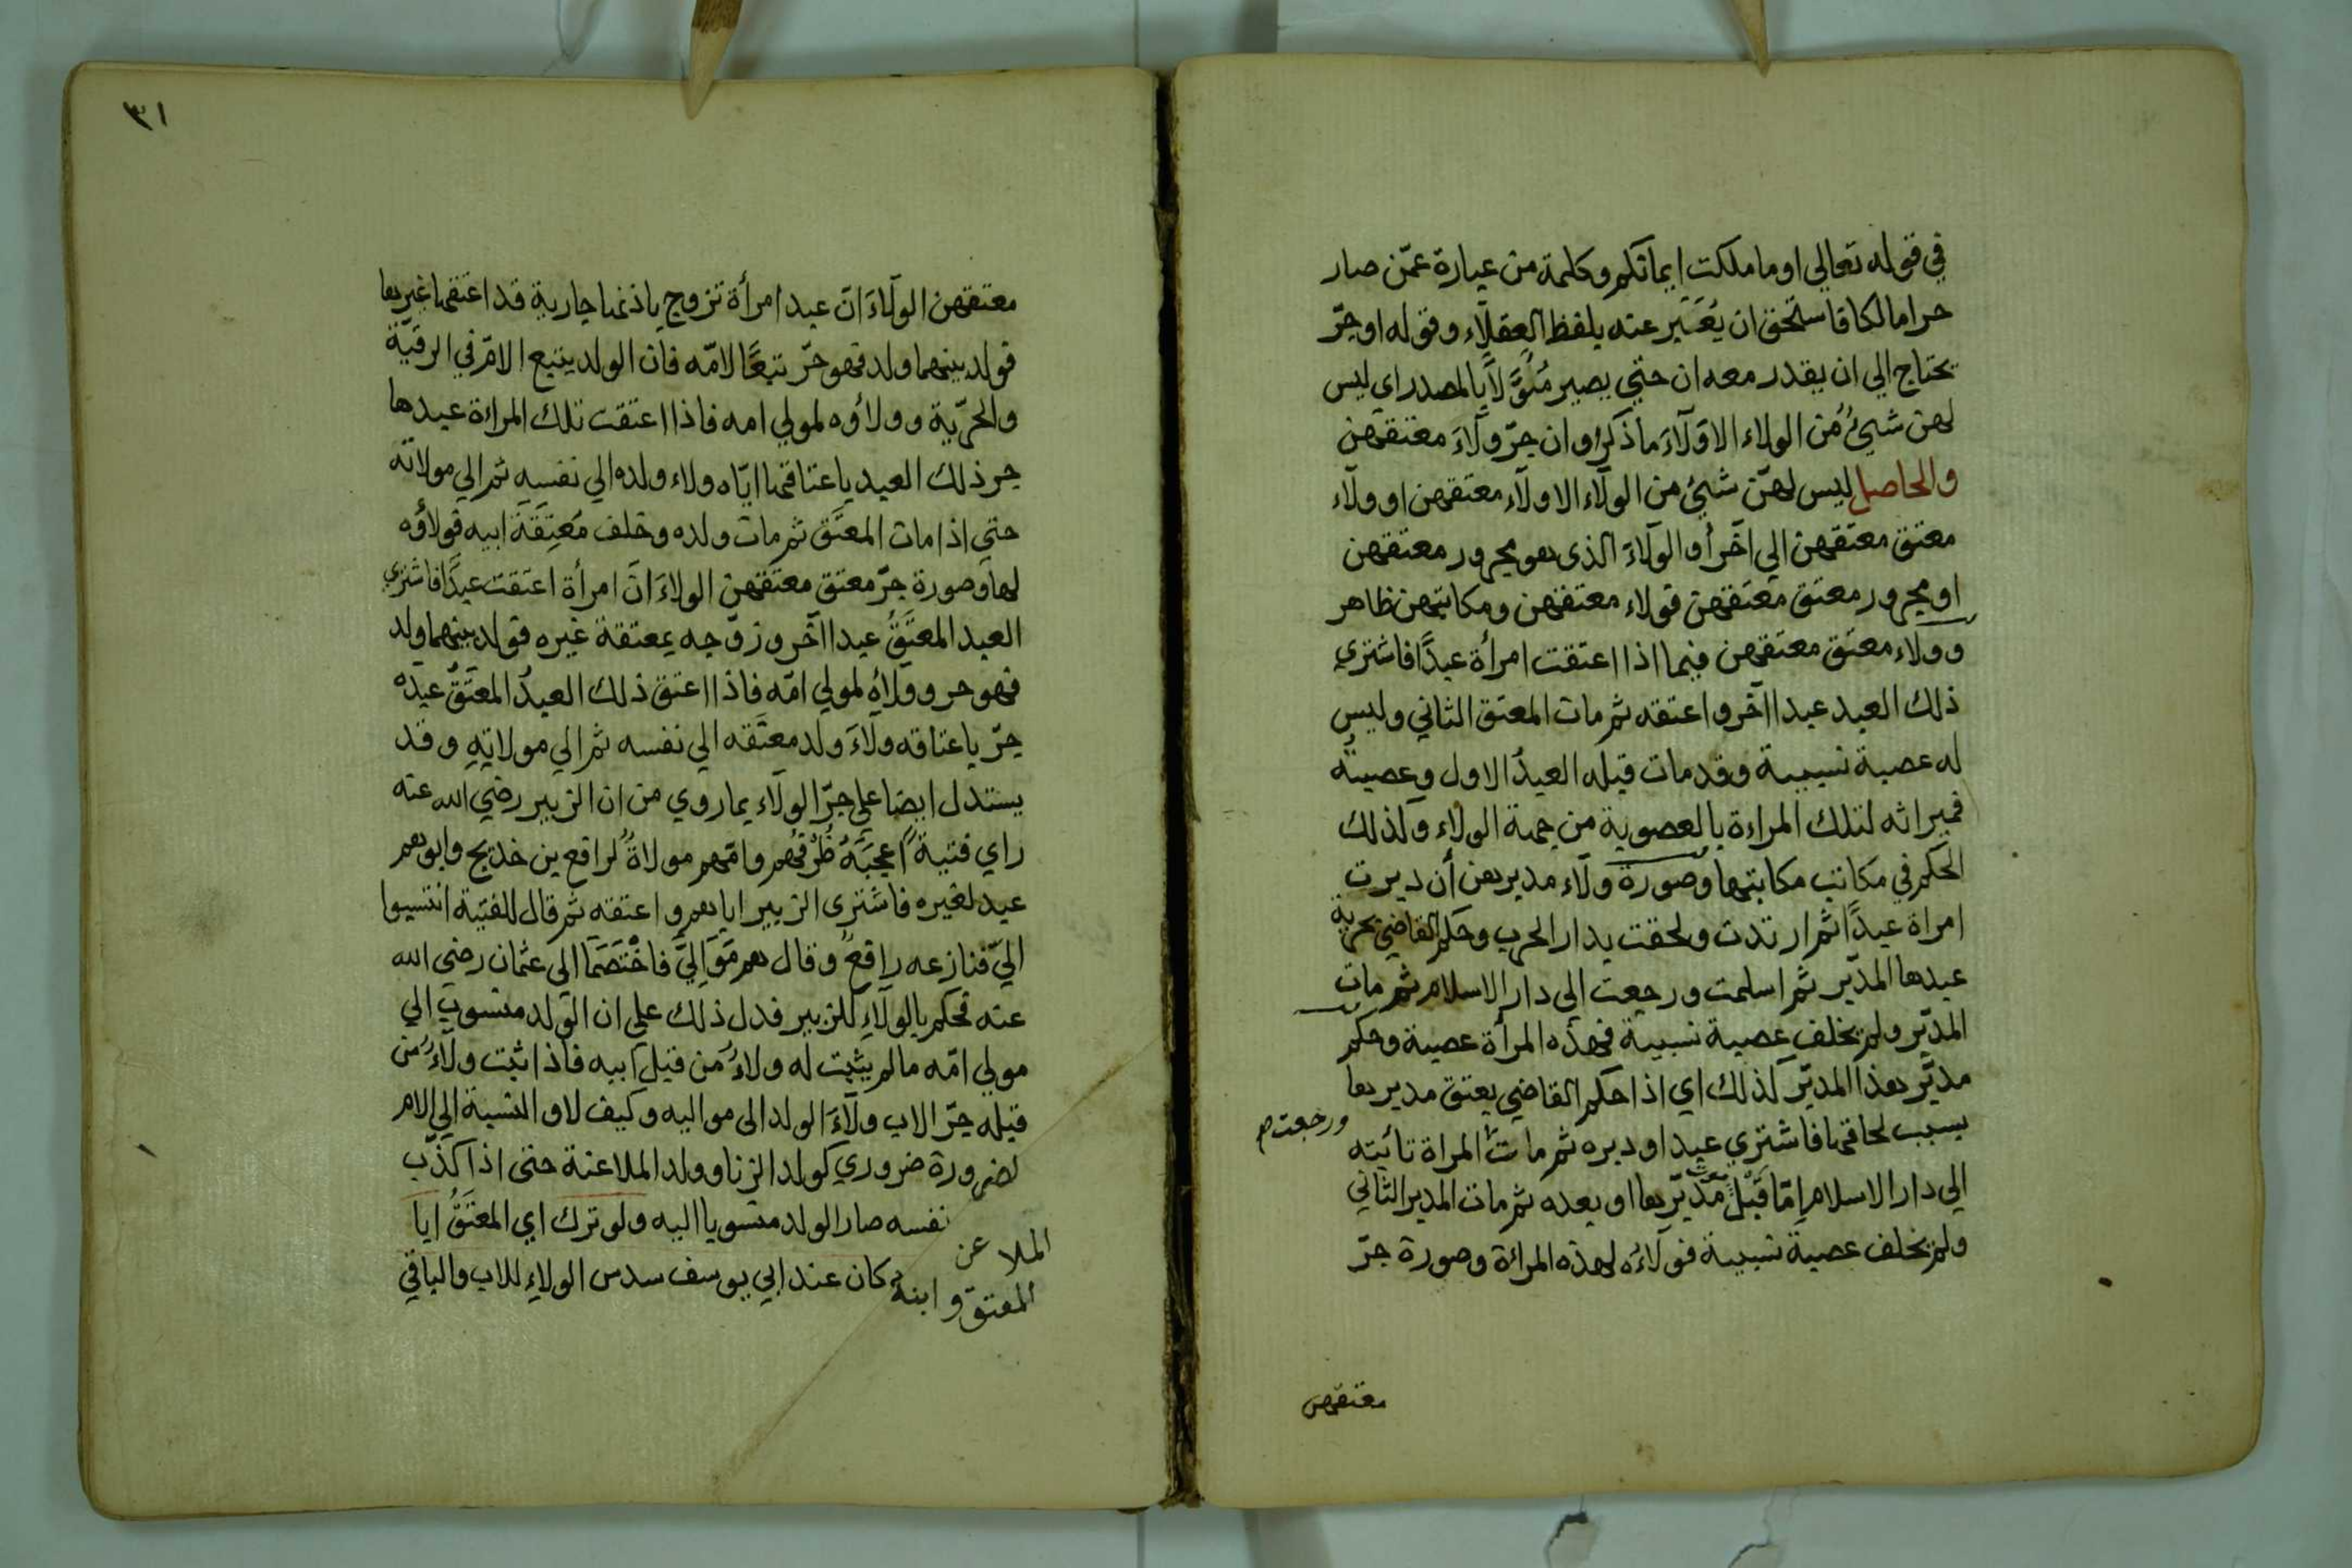 في قوله تعالي او ما ملكت ايمانكم وكلمة من عبارة عمّن صار
حرا مالكا فاستحق ان يُعَبّر عنه بلفظ العقلاء وقوله او جرّ
يحتاج الي ان يقدر معه ان حتي يصير مُئوَّلاً بالمصدر اي ليس
لهن شيئٌ من الولاء الا ولآءَ ما ذكر او ان جرّ ولآءَ معتقهن
والحاصل ليس لهنّ شيئ من الولآء الا ولآء معتقهن او ولآء
معتق معتقهن الي آخر أو الولآءَ الذى هو مجرور معتقهن
او مجرور معتَق مُعتَقهن فولاء معتقهن ومكاتبهن ظاهر
وولاء معتَق معتَقهن فيما اذا اعتقت امرأة عبدًا فاشتري
ذلك العبد عبدا آخر واعتقه ثم مات المعتق الثاني وليس
له عصبة نسبية وقد مات قبله العبدُ الاول وعصبتُه
فميراثه لتلك المراءة بالعصوبة من جهة الولاء وكذلك
الحكم في مكاتب مكاتبها وصورة ولآء مدبرهن أن دبرت
امراة عبدًا ثم ارتدت ولحقت بدار الحرب وحكم القاضي بحرية
عبدها المدبّر ثم اسلمت ورجعت الي دار الاسلام ثم مات
المدبّر ولم يخلف عصبة نسبية فهذه المرأة عصبة وحكم
مدبَّر هذا المدبّر كذلك اي اذا حكم القاضي بعتق مدبرها
بسبب لحاقها فاشتري عبدا ودبره ثم ماتَ المراة تائبته
ورجعت صح
الي دار الاسلام إمّا قَبْل موت مدبّرها او بعده ثم مات المدبر الثاني
ولم يخلف عصبة نسبية فولآءُه لهذه المراءة وصورة جرّ
معتقهن
٣١
معتقهن الولآءَ انّ عبد امرأة تزوج باذنها جارية قد اعتقها غيرها
فولد بينهما ولد فهو حرّ تبعًا لامّه فان الولد يتبع الامّ في الرقيّة
والحرّية وولاؤه لمولي امه فاذا اعتقت تلك المراءة عبدها
جر ذلك العبد باعتاقها ايّاه ولاء ولده الي نفسه ثم الي مولاته
حتي اذا مات المعتَق ثم مات ولده وخلف مُعتِقَةَ ابيه فولاؤه
لها وصورة جرّ معتق معتَقهن الولاءَ انّ امرأة اعتقت عبدًا فاشتري
العبد المعتَقُ عبدا آخر وزوّجه بمعتقة غيره فولد بينهما ولد
فهو حر وولآءه لمولي امّه فاذا اعتق ذلك العبدُ المعتَقُ عبدَه
جرّ باعتاقه ولآءَ ولد معتَقه الي نفسه ثم الي مولاتِهِ وقد
يستدل ايضا علي جرّ الولآء بما روي من ان الزبير رضي الله عنه
راي فتيةً اعجبَهُ ظُرْفُهم وامّهم مولاةٌ لرافع بن خديج وابوهم
عبد لغيره فاشترى الزبير اباهم واعتقه ثم قال للفتية انتسبوا
اليّ فنازعه رافعٌ وقال هم مَوَالِيَّ فاخْتَصَمَا الي عثمان رضي الله
عنه فحكم بالولآءِ للزبير فدل ذلك علي ان الولد منسوب الي
مولي امّه ما لم يثبت له ولاءٌ من قبل ابيه فاذا ثبت ولآءٌ من
قبله جرّ الاب ولآءَ الولد الى مواليه وكيف لا والنسبة الي الام
لضرورة ضروري كولد الزنا وولد الملاعنة حتى اذا كذّب
الملاعن نفسه صار الولد منسوبا اليه ولو ترك اي المعتَقُ ابا
المعتق وابنه كان عند ابي يوسف سدس الولاءِ للاب والباقي